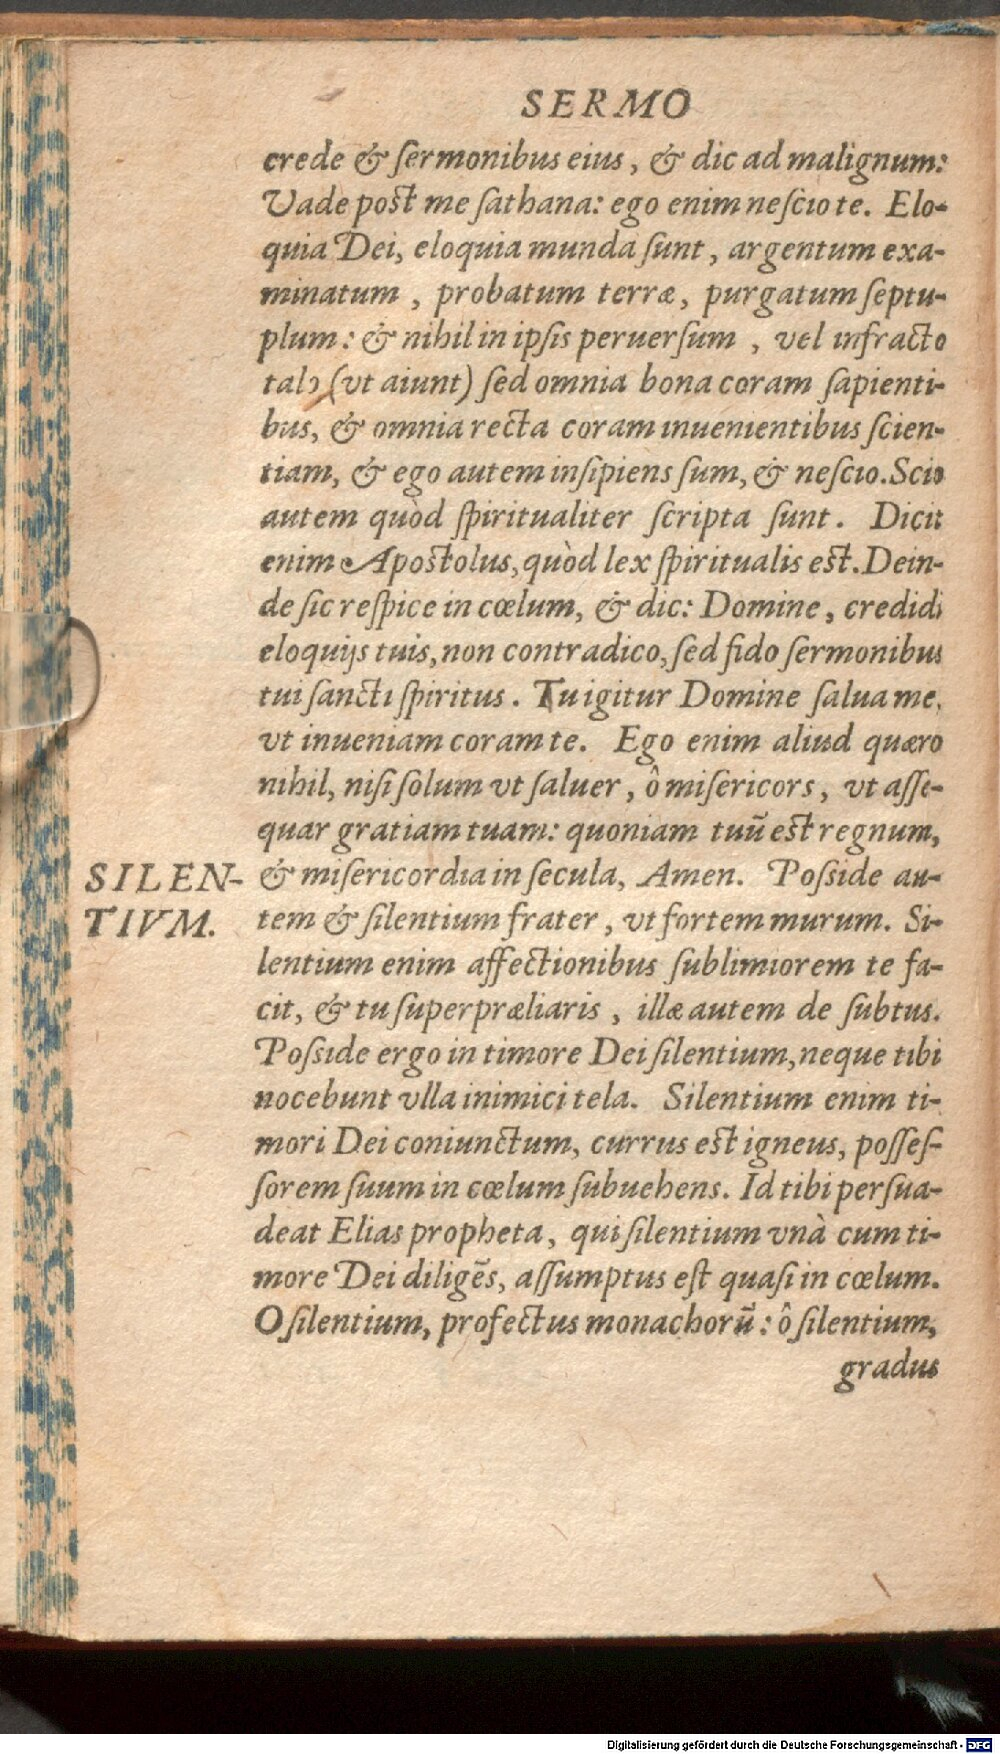 SERMO
crede & ſermonibus eius, & dic ad malignum:
Vade poſt me ſathana: ego enim neſcio te. Elo-
quia Dei, eloquia munda ſunt, argentum exa-
minatum, probatum terræ, purgatum ſeptu-
plum: & nihil in ipſis peruerſum, vel infracto
talo (vt aiunt) ſed omnia bona coram ſapienti-
bus, & omnia recta coram inuenientibus ſcien-
tiam, & ego autem inſipiens ſum, & neſcio. Scio
autem quòd ſpiritualiter ſcripta ſunt. Dicit
enim Apoſtolus, quòd lex ſpiritualis eſt. Dein-
de ſic reſpice in cœlum, & dic: Domine, credidi
eloquijs tuis, non contradico, ſed fido ſermonibus
tui ſancti ſpiritus. Tu igitur Domine ſalua me,
vt inueniam coram te. Ego enim aliud quæro
nihil, niſi ſolum vt ſaluer, ô miſericors, vt aſſe-
quar gratiam tuam: quoniam tuū eſt regnum,
& miſericordia in ſecula, Amen. Poſside au-
SILEN-
TIVM.
tem & ſilentium frater, vt fortem murum. Si-
lentium enim affectionibus ſublimiorem te fa-
cit, & tu ſuperpræliaris, illæ autem de ſubtus.
Poſside ergo in timore Dei ſilentium, neque tibi
nocebunt vlla inimici tela. Silentium enim ti-
mori Dei coniunctum, currus eſt igneus, poſſeſ-
ſorem ſuum in cœlum ſubuehens. Id tibi perſua-
deat Elias propheta, qui ſilentium vnà cum ti-
more Dei diligēs, aſſumptus eſt quaſi in cœlum.
O ſilentium, profectus monachorū: ô ſilentium,
gradus
Digitalisierung gefördert durch die Deutsche Forschungsgemeinschaft - DFG